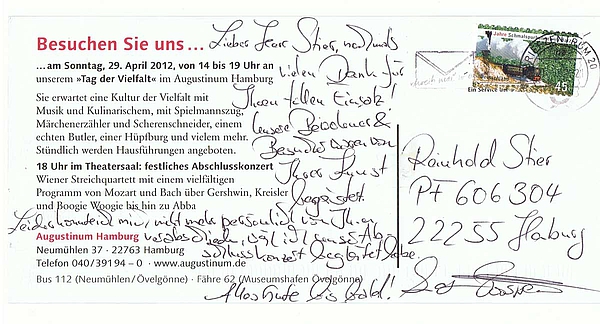 Besuchen Sie uns ...
... am Sonntag, 29. April 2012, von 14 bis 19 Uhr an
unserem »Tag der Vielfalt« im Augustinum Hamburg
Sie erwartet eine Kultur der Vielfalt mit
Musik und Kulinarischem, mit Spielmannszug,
Märchenerzähler und Scherenschneider, einem
echten Butler, einer Hüpfburg und vielem mehr.
Stündlich werden Hausführungen angeboten.
18 Uhr im Theatersaal: festliches Abschlusskonzert
Wiener Streichquartett mit einem vielfältigen
Programm von Mozart und Bach über Gershwin, Kreisler
und Boogie Woogie bis hin zu Abba
Augustinum Hamburg
Neumühlen 37 · 22763 Hamburg
Telefon 040/391 94 – 0 · www.augustinum.de
Bus 112 (Neumühlen/Övelgönne) · Fähre 62 (Museumshafen Övelgönne)
Lieber Herr Stier, nochmals
vielen Dank für
Ihren tollen Einsatz!
Unsere Bewohner &
Besucher waren von
Ihrer Kunst
begeistert.
Leider konnte ich mich nicht mehr persönlich von Ihnen
verabschieden, weil ich unser Ab-
schlusskonzert begleitet habe.
Alles Gute bis bald!
Jahre Schmalspur
Ein Service
45
BRIEFZENTRUM 20
Reinhold Stier
PF 606 304
22255 Hamburg